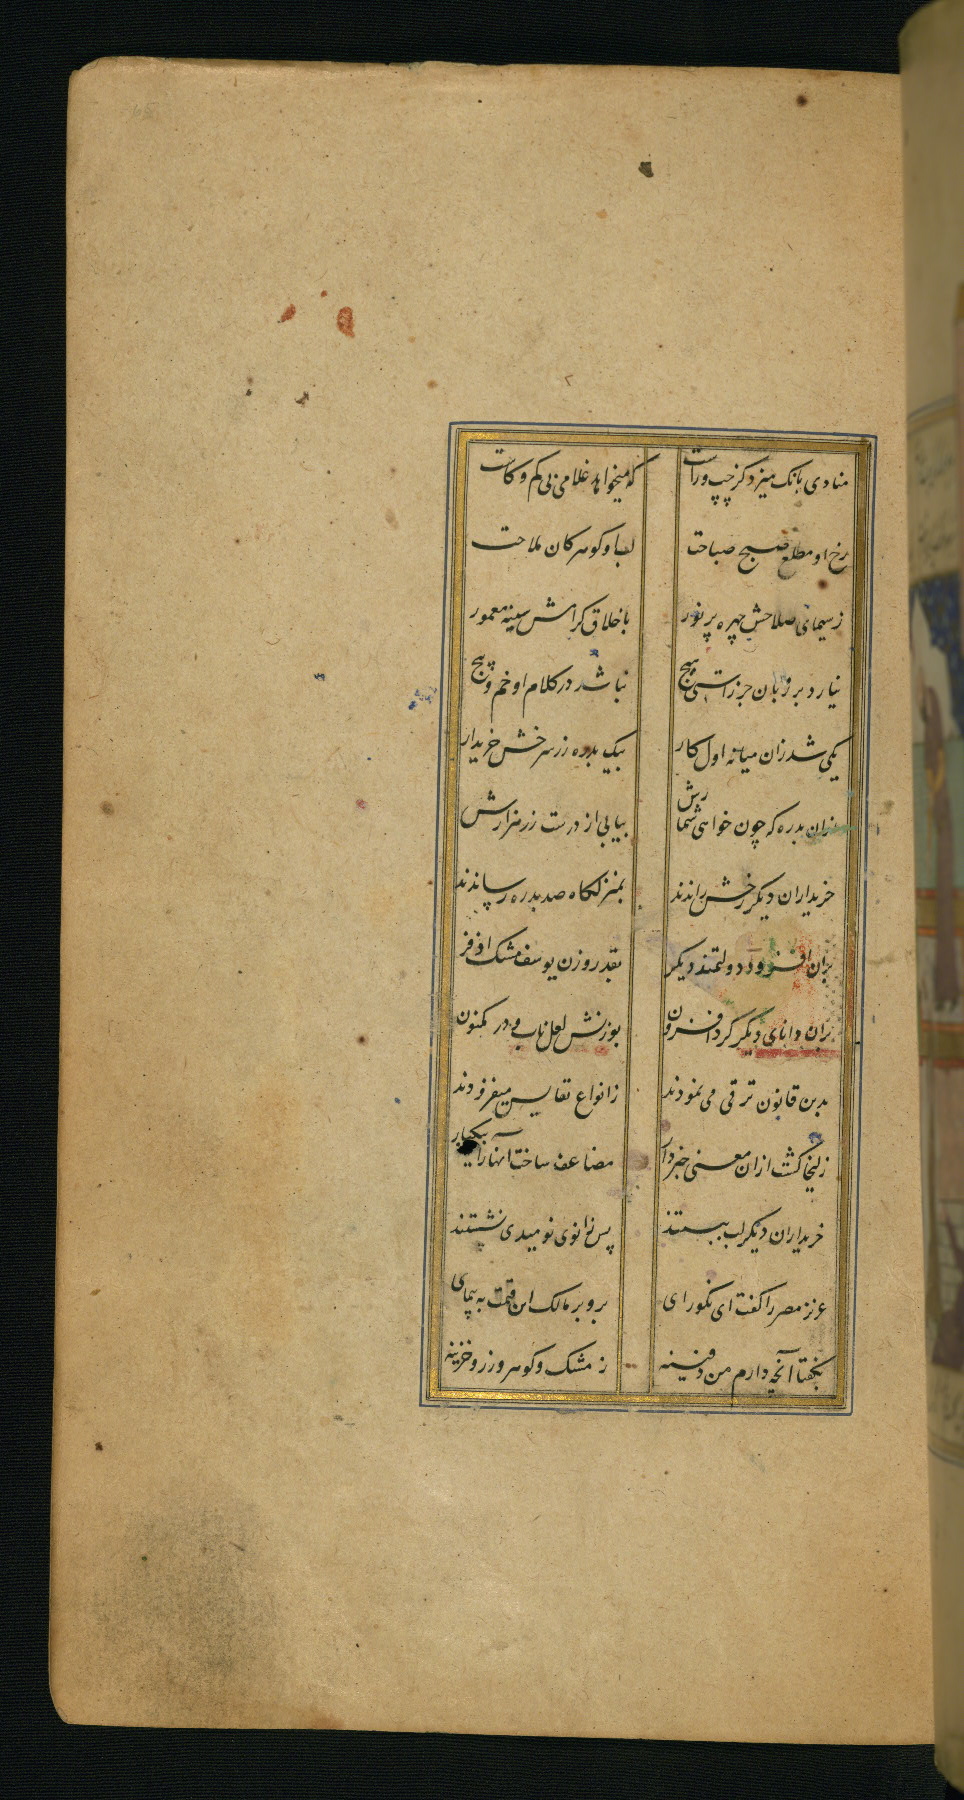 منادی بانک میزد کز چپ و راست که میخواهد غلامی بی کم و کاست
رخ او مطلع صبح صباحت لب او کوهر کان ملاحت
ز سیمای صلاحش چهره پر نور باخلاق کرامش سینه معمور
نیارد بر زبان جز راستی هیچ نباشد در کلام او خم و پیچ
یکی شد زان میانه اول کار بیک بدره زر سرخش خریدار
ازان بدره که چون خواهی شمارش بیابی از درست زر هزارش
خریداران دیکر رخش راندند بمنزلکاه صد بدره رساندند
بران افزود دولتمند دیکر بقدر وزن یوسف مشک اذفر
بران دانای دیکر کرد افزون بوزنش لعل ناب و در مکنون
بدین قانون ترقی می نمودند ز انواع نفایس میفزودند
زلیخا کشت ازان معنی خبردار مضاعف ساخت آنها را بیکبار
خریداران دیکر لب ببستند پس زانوی نومیدی نشستند
عزیز مصر را کفت ای نکورای برو بر مالک این قیمت به پیمای
بکفتا آنچه دارم من دفینه ز مشک و کوهر و زر و خزینه